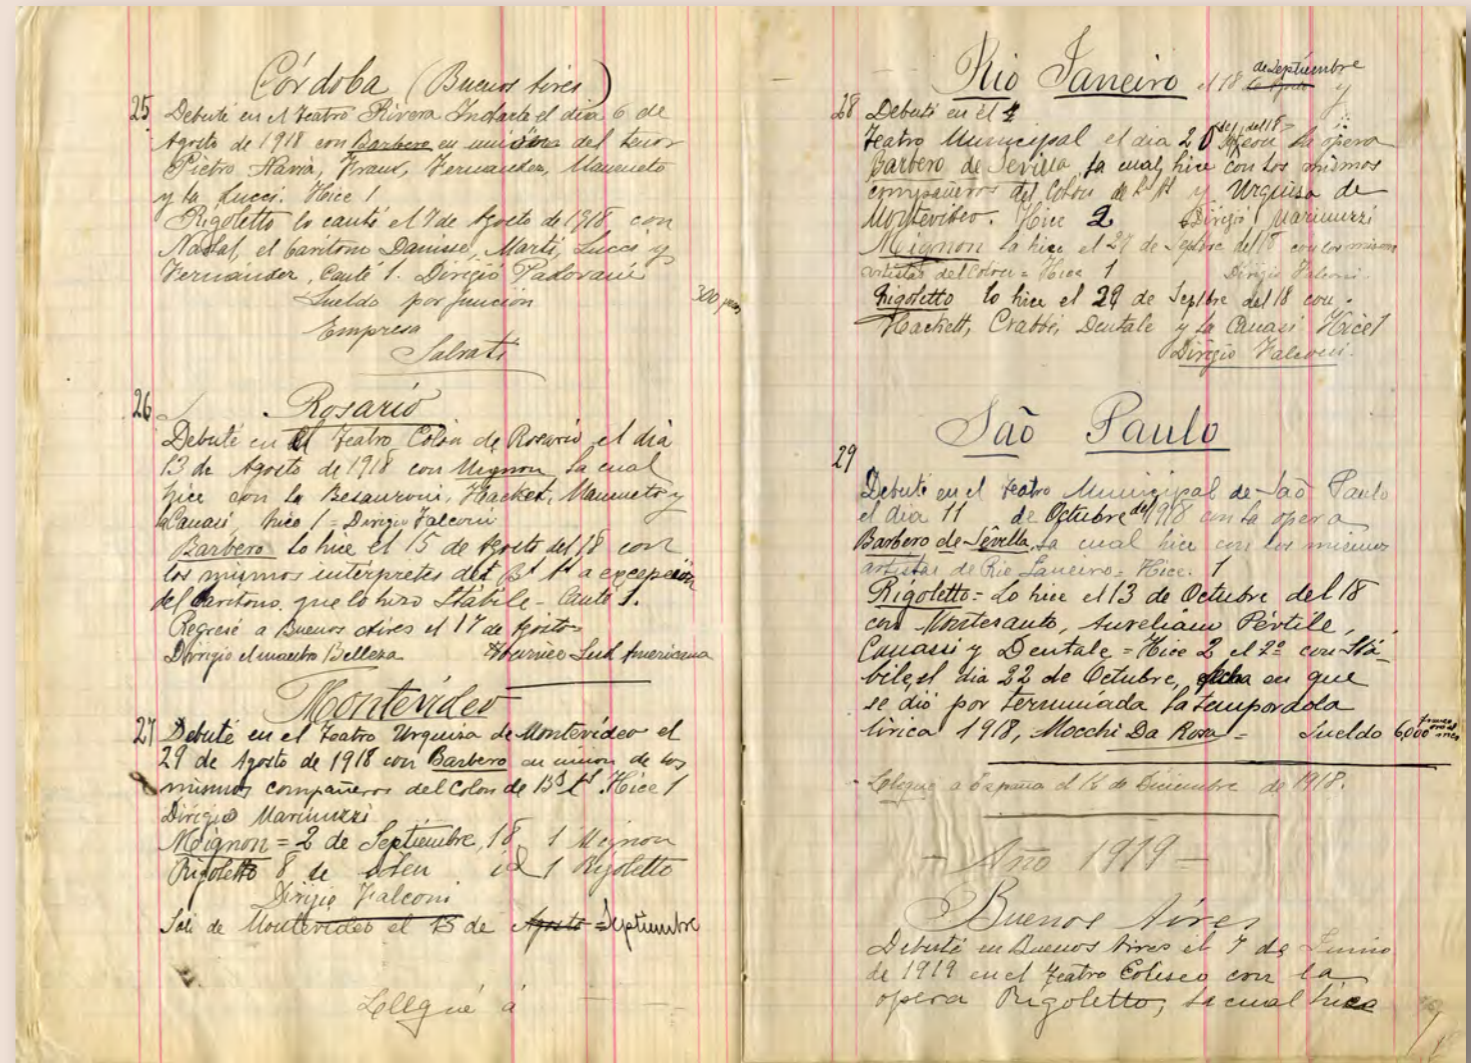 Córdoba (Buenos Aires)
25 Debuté en el Teatro Rivera Indarte el dia 6 de
Agosto de 1918 con Barbero en union del tenor
Pietro Navia, Fernandez, Mannueto
y la Lucci. Hice 1
Rigoletto lo canté el 7 de Agosto de 1918 con
Nadal, el baritono Danisse, Martí, Lucci y
Fernandez, Canté 1. Dirigió Padovani
Sueldo por función 300 pesos
Empresa
Salvati
26 Rosario
Debuté en el Teatro Colón de Rosario el dia
13 de Agosto de 1918 con Mignon la cual
hice con la Besanzoni, Hacket, Mannueto y
la Canasi, hice 1 = Dirigio Falconi
Barbero lo hice el 15 de Agosto del 18 con
los mismos intérpretes del Bs As a excepción
del baritono que lo hizo Stábile - Canté 1.
Regresé a Buenos Aires el 17 de Agosto
Dirrigio el maestro Bellezza Tournée Sud Americana
Montevídeo
27 Debuté en el Teatro Urquiza de Montevídeo el
29 de Agosto de 1918 con Barbero en union de los
mismos compañeros del Colon de Bs As. Hice 1
Dirigio Marinuzzi
Mignon = 2 de Septiembre, 18 1 Mignon
Rigoletto 8 de id 1 Rigoletto
Dirigio Falconi
Sali de Montevideo el 13 de Agosto = Septiembre
Llegué á
Rio Janeiro el 18 de Septiembre y
28 Debuté en el
Teatro Municipal el dia 20 Sep. del 18 con la opera
Barbero de Sevilla, la cual, hice con los mismos
compañeros del Colon de Bs As y Urquisa de
Montevideo. Hice 2 Dirigió Marinuzzi
Mignon la hice el 27 de Sepbre del 18 con los mismos
artistas del Colon = Hice 1 Dirigio Falconi.
Rigoletto lo hice el 29 de Sepbre del 18 con
Hackett, Crabbé, Dentale y la Canasi Hice 1
Dirigio Falconi.
São Paulo
29 Debuté en el Teatro Municipal de Saõ Paulo
el dia 11 de Octubre del 1918 con la opera
Barbero de Sevilla, la cual hice con los mismos
artistas de Rio Janeiro = Hice: 1
Rigoletto = Lo hice el 13 de Octubre del 18
con Montesanto, Aureliano Pértile,
Canassi y Dentale = Hice 2 el 2º con Stá-
bile, el dia 22 de Octubre, fecha en que
se dió por terminada la temporda
lírica 1918, Mocchi Da Rosa = Sueldo 6,000
Llegué a España el 16 de Diciembre de 1918.
- Año 1919 -
Buenos Aires
Debuté en Buenos Aires el 7 de Junio
de 1919 en el Teatro Coliseo con la
opera Rigoletto, la cual hice